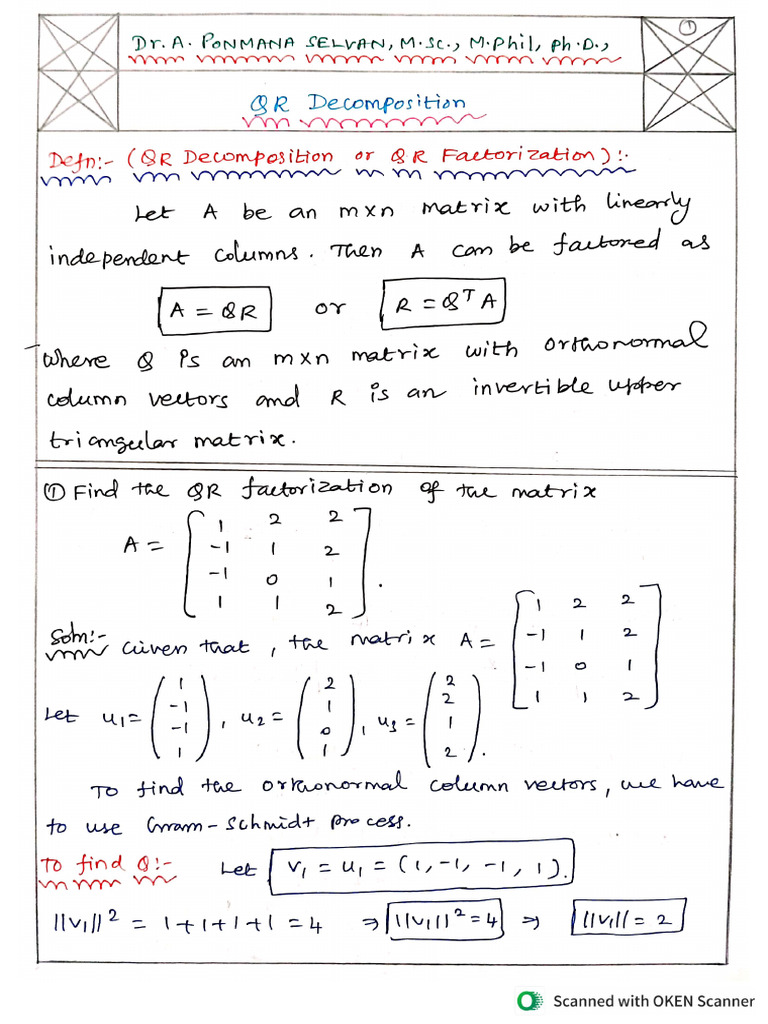 ①
Dr. A. PONMANA SELVAN, M.Sc., M.Phil, Ph.D.,
QR Decomposition
Defn:- (QR Decomposition or QR Factorization):-
Let A be an m×n matrix with linearly
independent columns. Then A can be factored as
A = QR or R = Qᵀ A
where Q is an m×n matrix with orthonormal
column vectors and R is an invertible upper
triangular matrix.
① Find the QR factorization of the matrix
A = [1 2 2
-1 1 2
-1 0 1
1 1 2].
Soln:- Given that, the matrix A = [1 2 2
-1 1 2
-1 0 1
1 1 2]
Let u₁ = (1 -1 -1 1), u₂ = (2 1 0 1), u₃ = (2 2 1 2).
To find the orthonormal column vectors, we have
to use Gram-Schmidt process.
To find Q:- Let v₁ = u₁ = (1, -1, -1, 1).
||v₁||² = 1+1+1+1 = 4 ⇒ ||v₁||² = 4 ⇒ ||v₁|| = 2
Scanned with OKEN Scanner